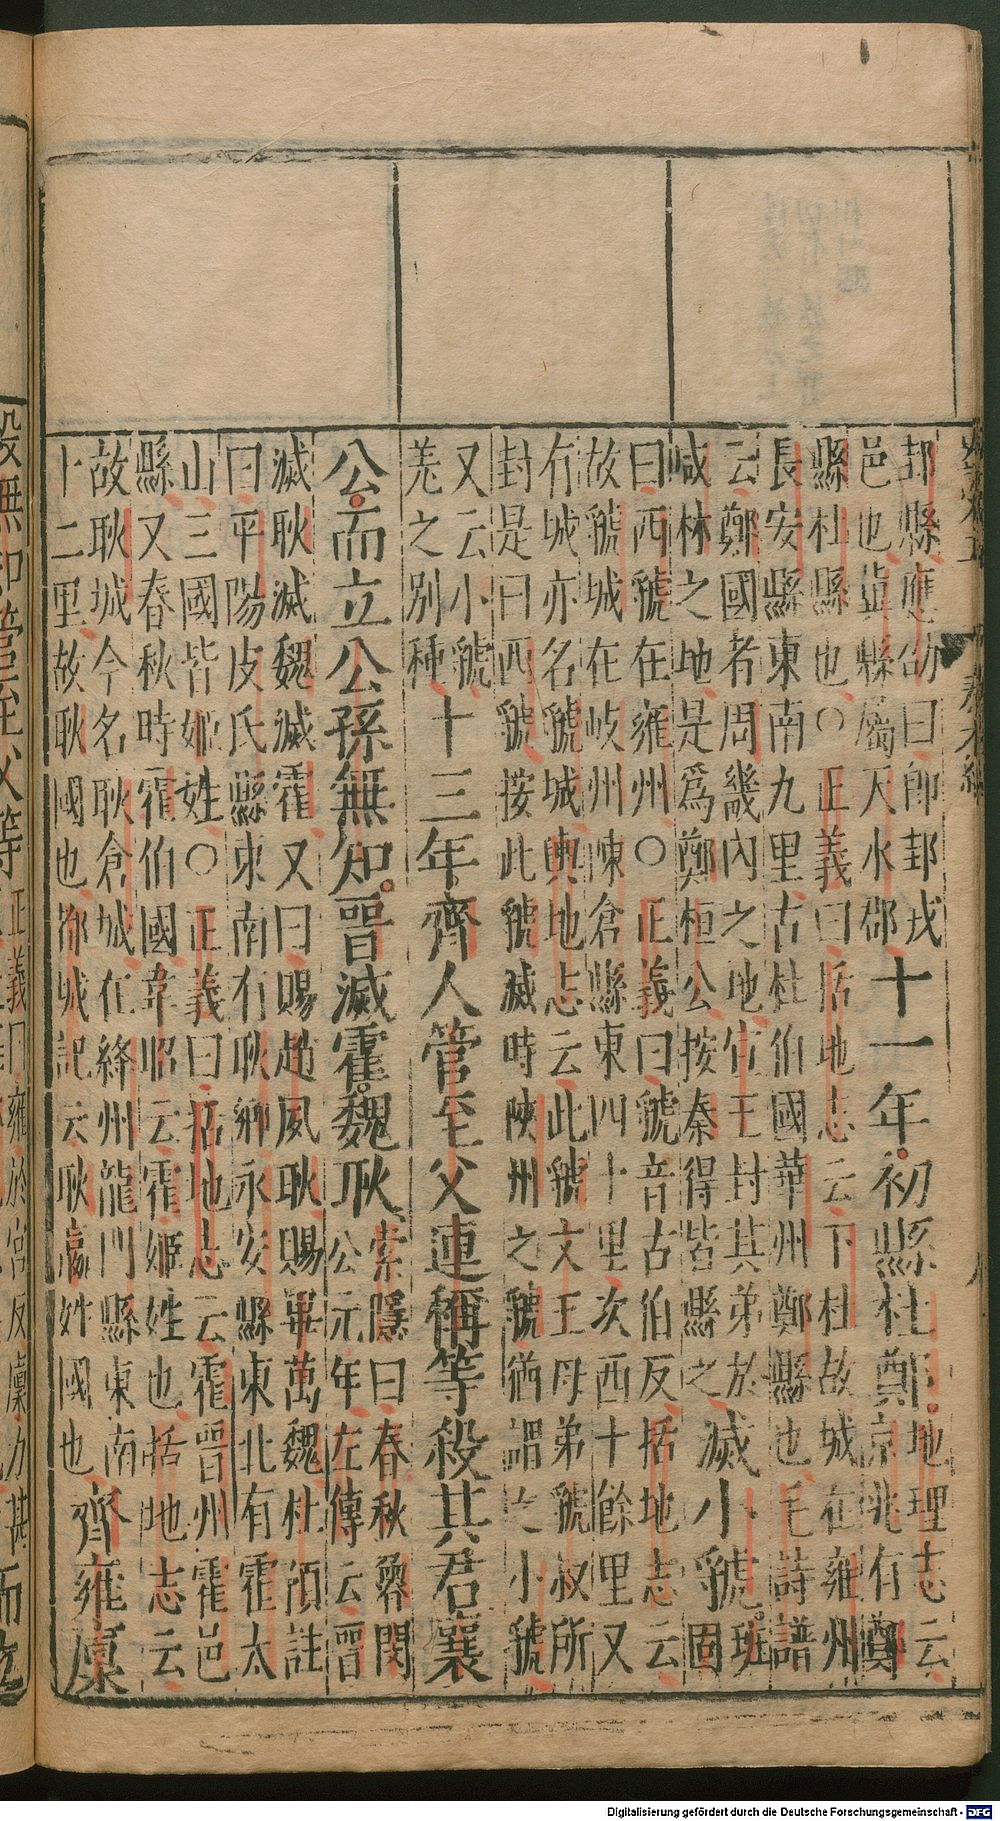 邽縣應劭曰即邽戎
邑也冀縣屬天水郡
十一年初縣杜鄭
地理志云
京兆有鄭
縣杜縣也○正義曰括地志云下杜故城在雍州
長安縣東南九里古杜伯國華州鄭縣也毛詩譜
云鄭國者周畿內之地宣王封其弟於
咸林之地是爲鄭桓公按秦得皆縣之
滅小虢
班
固
曰西虢在雍州○正義曰虢音古伯反括地志云
故虢城在岐州陳倉縣東四十里次西十餘里又
有城亦名虢城輿地志云此虢文王母弟虢叔所
封是曰西虢按此虢滅時陝州之虢猶謂之小虢
又云小虢
羌之別種
十三年齊人管至父連稱等殺其君襄
公而立公孫無知晉滅霍魏耿
索隱曰春秋魯閔
公元年左傳云晉
滅耿滅魏滅霍又曰賜趙夙耿賜畢萬魏杜預註
曰平陽皮氏縣東南有耿鄉永安縣東北有霍太
山三國皆姬姓○正義曰括地志云霍晉州霍邑
縣又春秋時霍伯國韋昭云霍姬姓也括地志云
故耿城今名耿倉城在絳州龍門縣東南
十二里故耿國也都城記云耿嬴姓國也
齊雍廩
殺無知管至父等
正義曰雍於宮反廩力甚
Digitalisierung gefördert durch die Deutsche Forschungsgemeinschaft - DFG